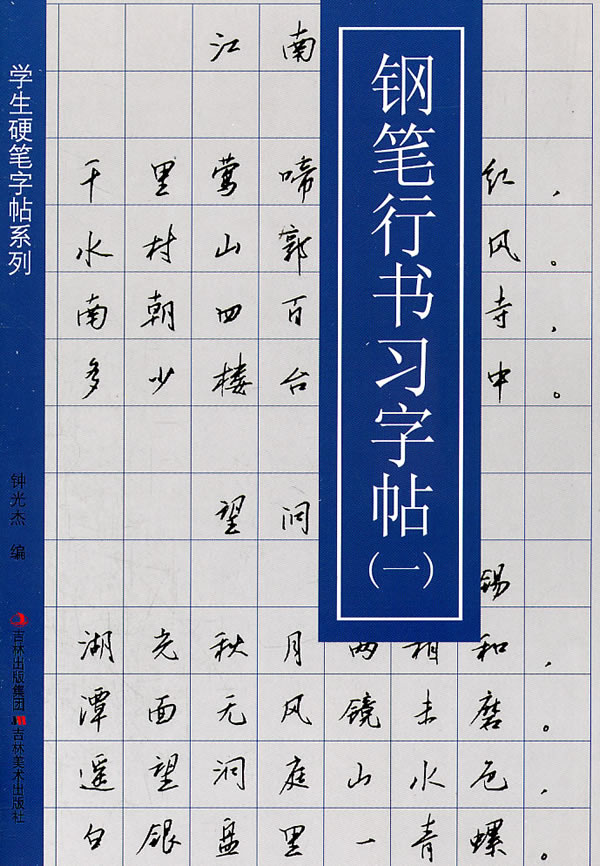 学生硬笔字帖系列
钟光杰 编
吉林出版集团
吉林美术出版社
钢笔行书习字帖(一)
江南
千里莺啼红，
水村山郭风。
南朝四百寺，
多少楼台中。
望洞
锡
湖光秋月两相和，
潭面无风镜未磨。
遥望洞庭山水色，
白银盘里一青螺。